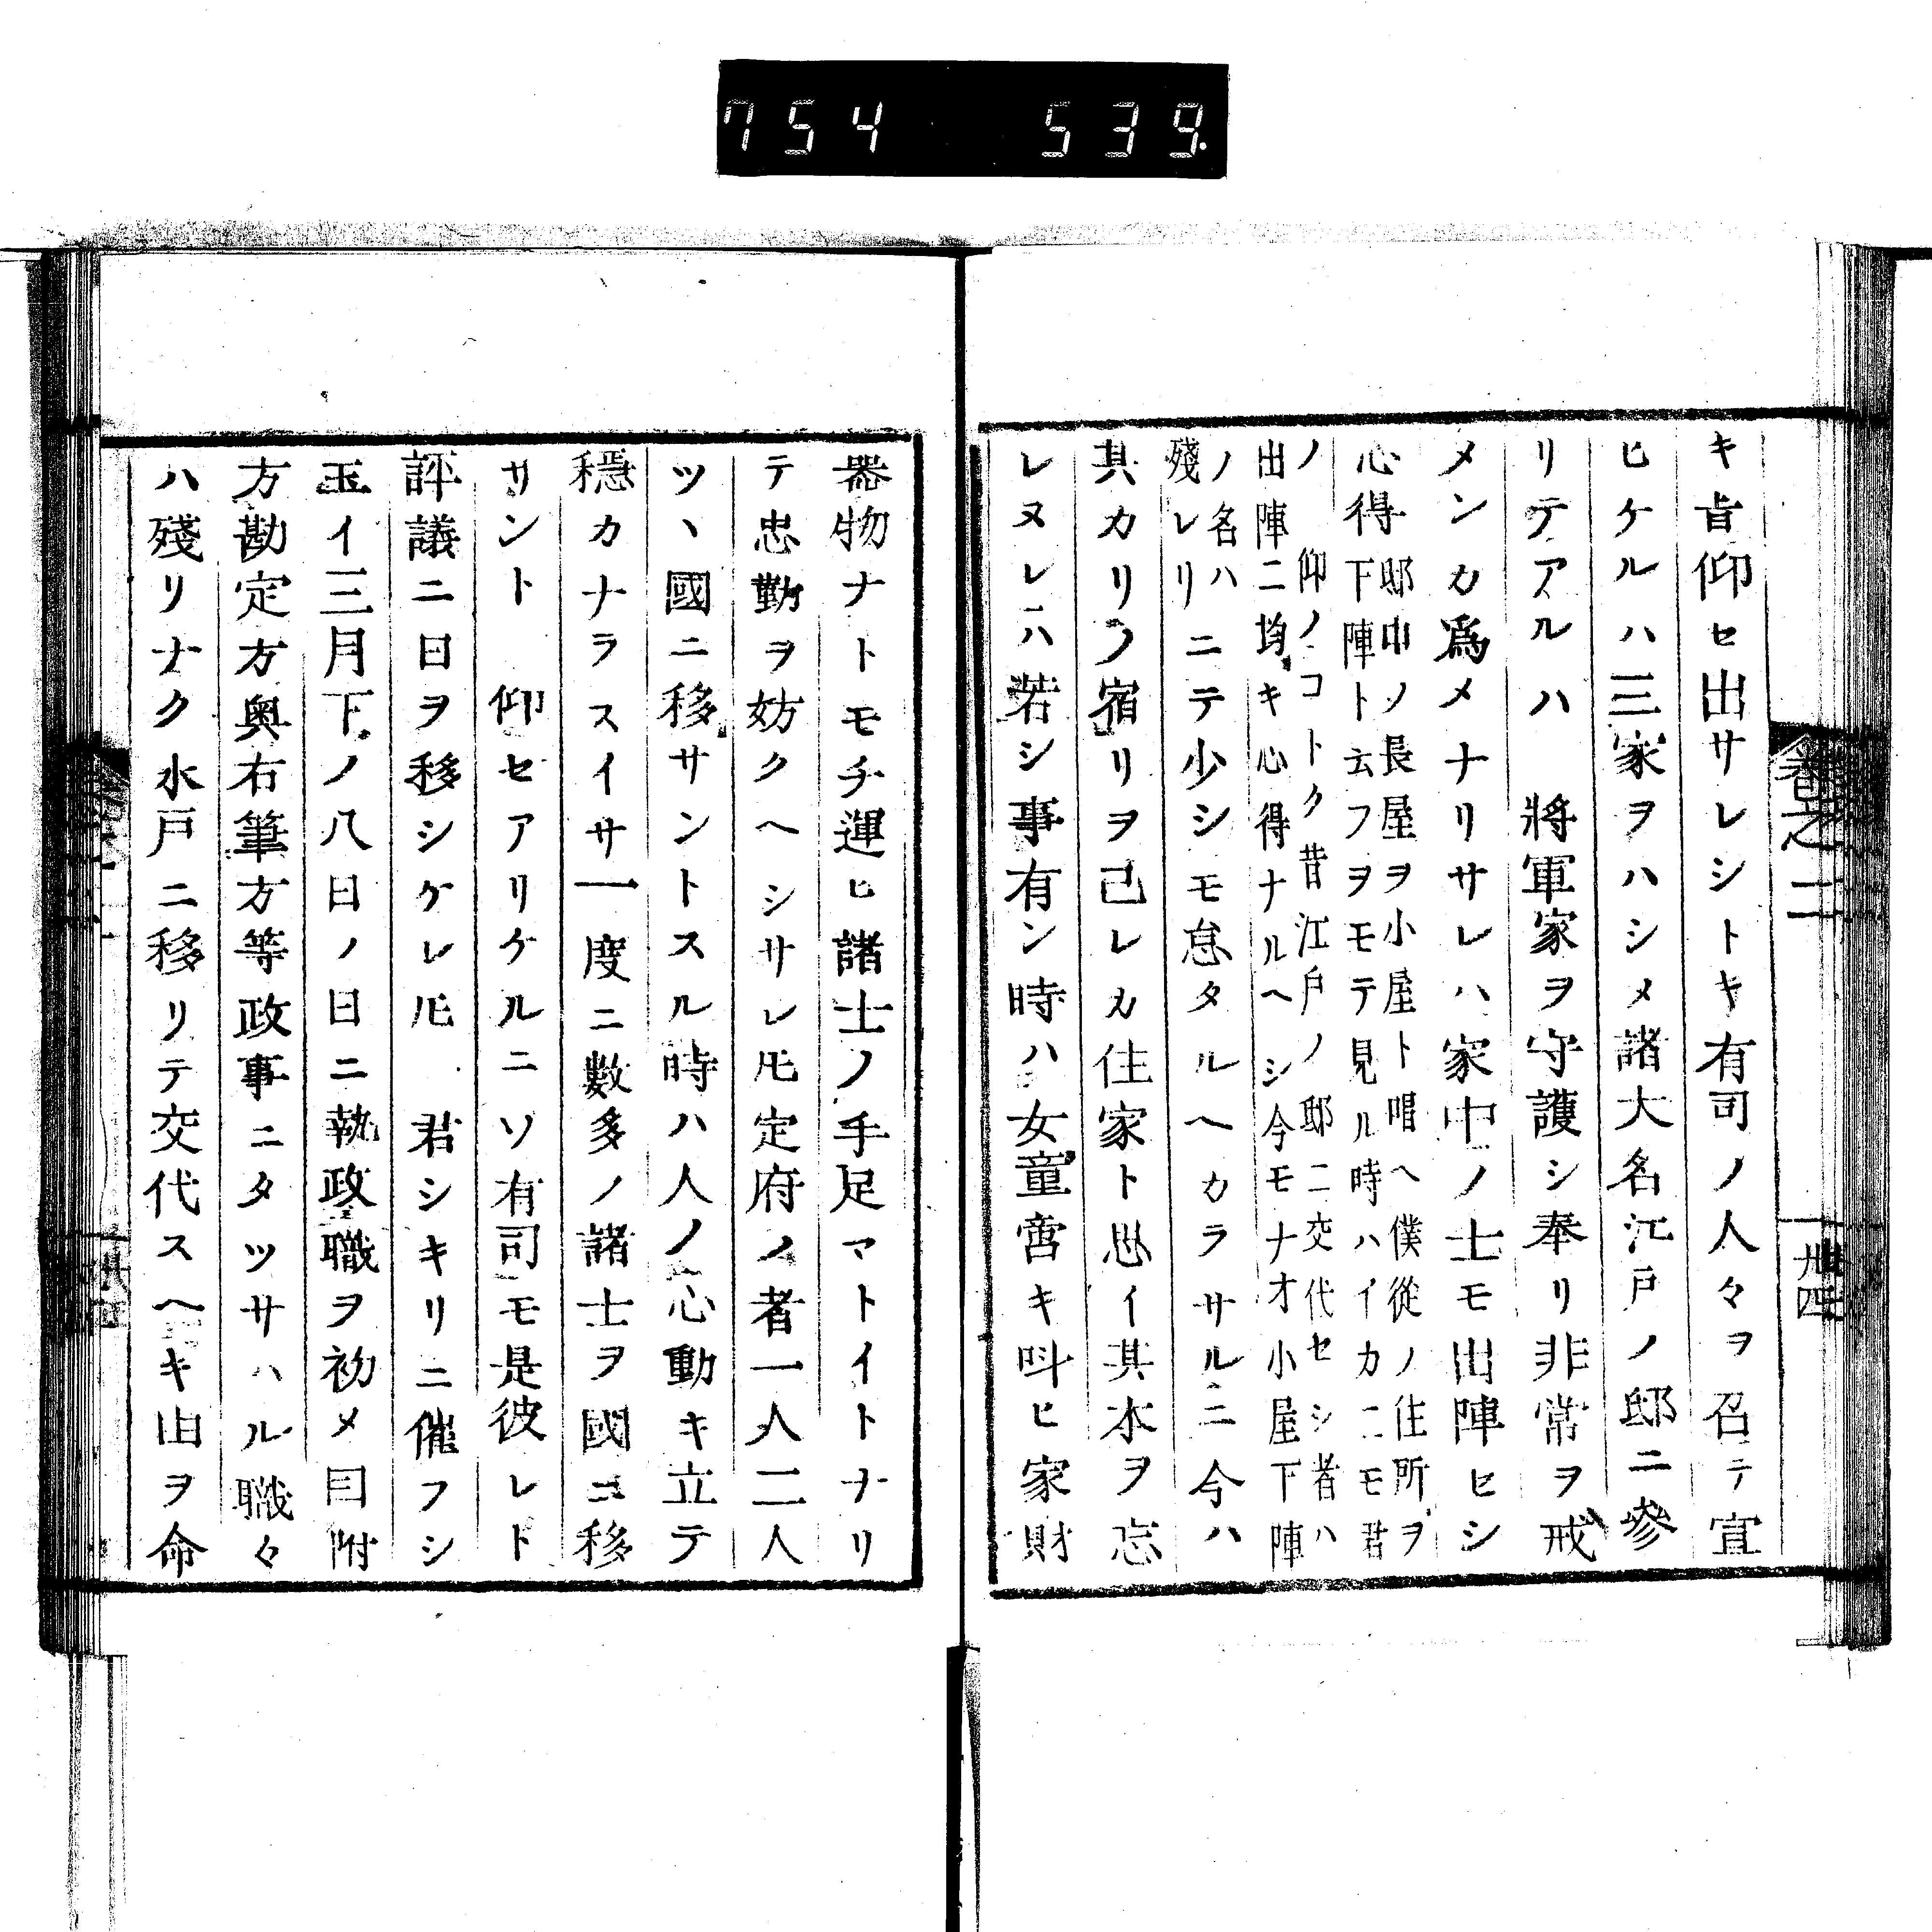 754 539.
卷之二
卅四
キ旨仰セ出サレシトキ有司ノ人々ヲ召テ宣
ヒケルハ三家ヲハシメ諸大名江戸ノ邸ニ參
リテアルハ 將軍家ヲ守護シ奉リ非常ヲ戒
メンカ爲メナリサレハ家中ノ士モ出陣ヒシ
心得
邸中ノ長屋ヲ小屋ト唱ヘ僕從ノ住所ヲ
下陣ト云フヲモテ見ル時ハイカニモ君
ノ 仰ノコトク昔江戸ノ邸ニ交代セシ者ハ
出陣ニ均キ心得ナルヘシ今モナオ小屋下陣
ノ名ハ
殘レリ
ニテ少シモ怠タルヘカラサルニ今ハ
其カリノ宿リヲ己レカ住家ト思イ其本ヲ忘
レヌレハ若シ事有ン時ハ女童啻キ呌ヒ家財
器物ナトモチ運ヒ諸士ノ手足マトイトナリ
テ忠勤ヲ妨クヘシサレ𪜈定府ノ者一人二人
ツヽ國ニ移サントスル時ハ人ノ心動キ立テ
穩カナラスイサ一度ニ數多ノ諸士ヲ國ニ移
サント 仰セアリケルニソ有司モ是彼レト
評議ニ日ヲ移シケレ𪜈 君シキリニ催フシ
玉イ三月下ノ八日ノ日ニ執政職ヲ初メ目附
方勘定方奥右筆方等政事ニタツサハル職々
ハ殘リナク水戸ニ移リテ交代スヘキ由ヲ命